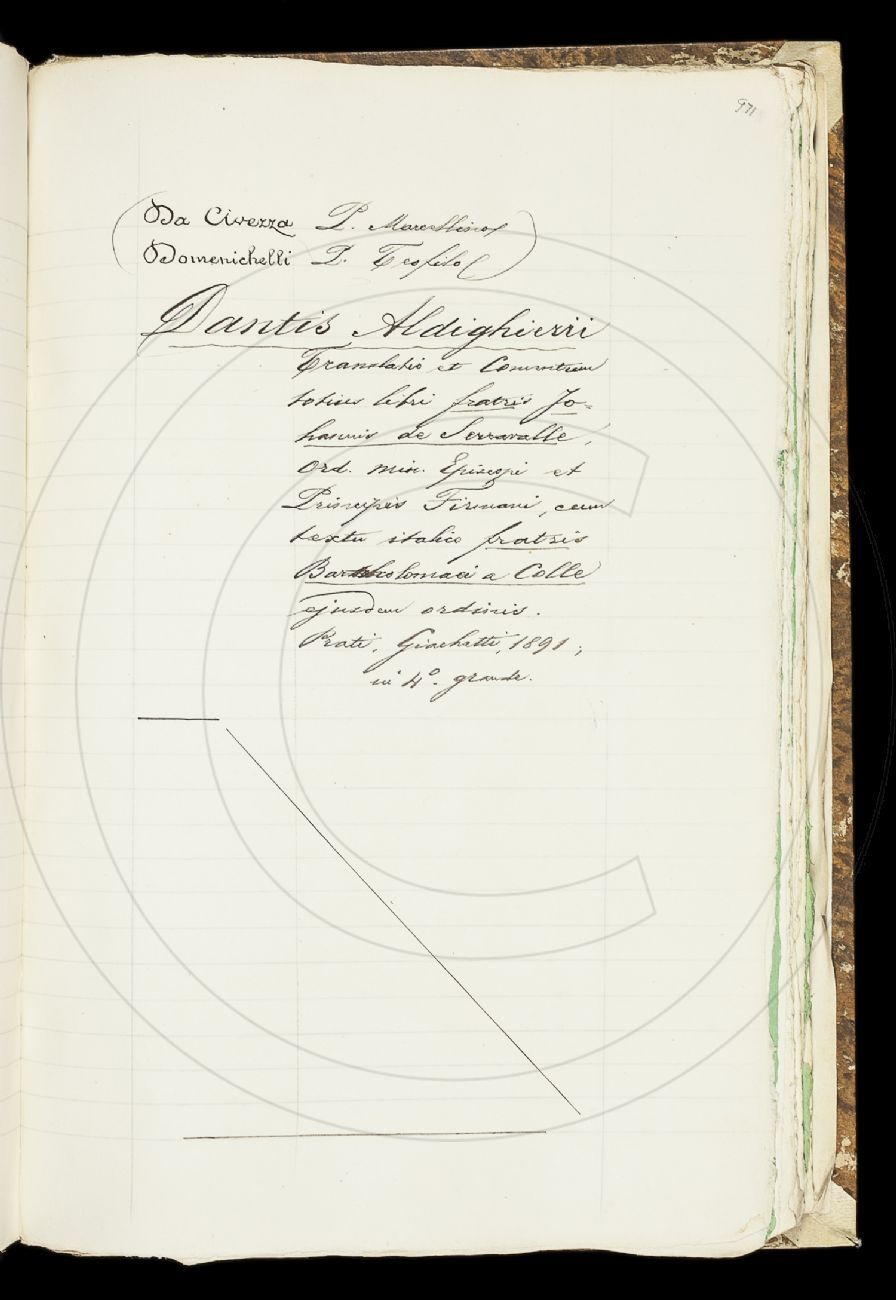 971
(Da Civezza P. Marcellino)
(Domenichelli P. Teofilo)
Dantis Aldighierii
Translatio et Comentum
totius libri fratris Jo-
hannis de Serravalle,
Ord. Min. Episcopi et
Principis Firmani, cum
textu italico fratris
Bartholomaei a Colle
ejusdem ordinis.
Prati, Giachetti, 1891;
in 4º. grande.